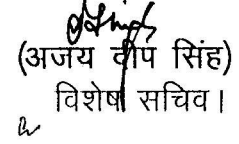 (अजय दीप सिंह)
विशेष सचिव।